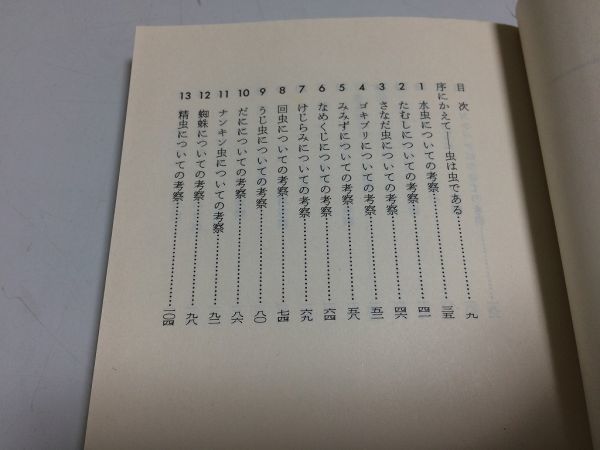 目次
序にかえて――虫は虫である……………九
1 水虫についての考察……………三五
2 たむしについての考察……………四一
3 さなだ虫についての考察……………四六
4 ゴキブリについての考察……………五二
5 みみずについての考察……………五八
6 なめくじについての考察……………六四
7 けじらみについての考察……………六九
8 回虫についての考察……………七四
9 うじ虫についての考察……………八〇
10 だにについての考察……………八六
11 ナンキン虫についての考察……………九二
12 蜘蛛についての考察……………九八
13 精虫についての考察……………一〇四